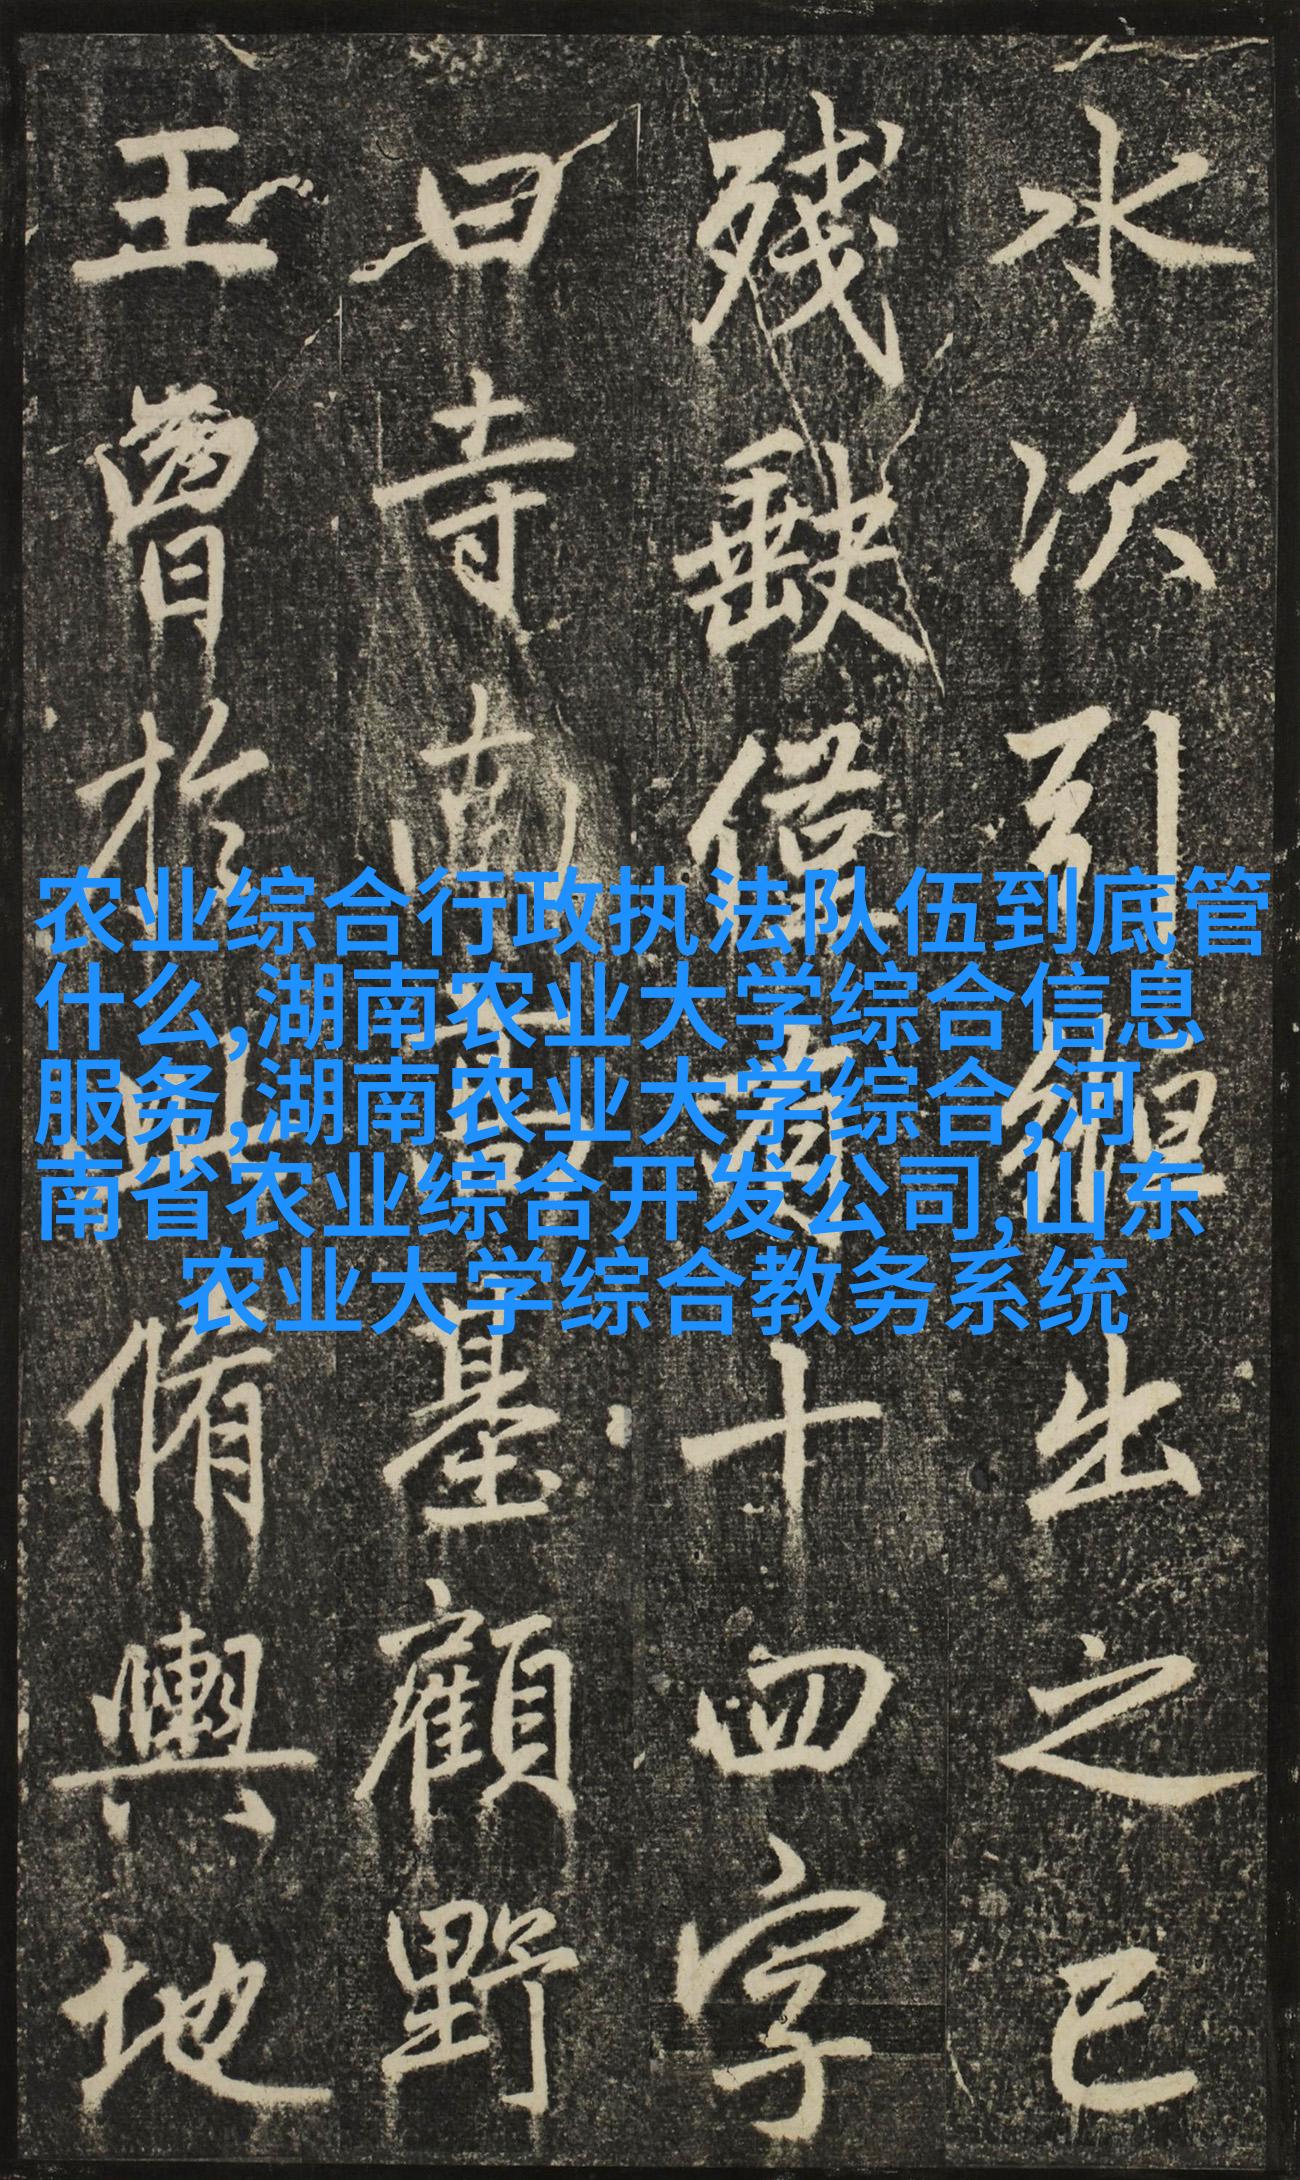 水次引綆出之已
殘缺僅十四字
曰寺南高基顧野
王曾於此脩輿地
农业综合行政执法队伍到底管
什么,湖南农业大学综合信息
服务,湖南农业大学综合,河
南省农业综合开发公司,山东
农业大学综合教务系统